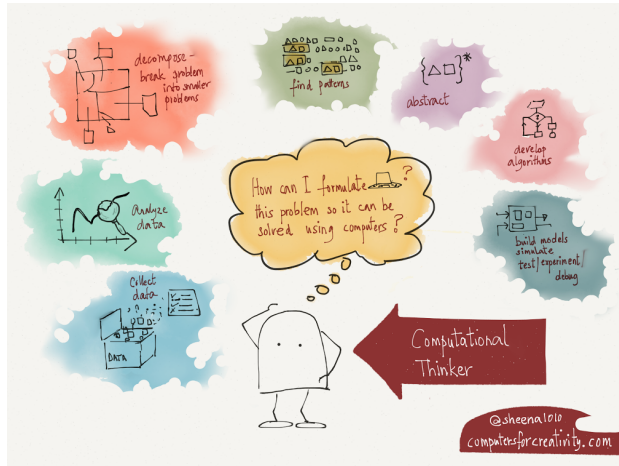 decompose -
break problem
into smaller
problems
find patterns
{ }*
abstract
develop
algorithms
analyze
data
How can I formulate ?
this problem so it can be
solved using computers?
build models
simulate
test/experiment/
debug
Collect
data
DATA
Computational
Thinker
@sheena1010
computersforcreativity.com